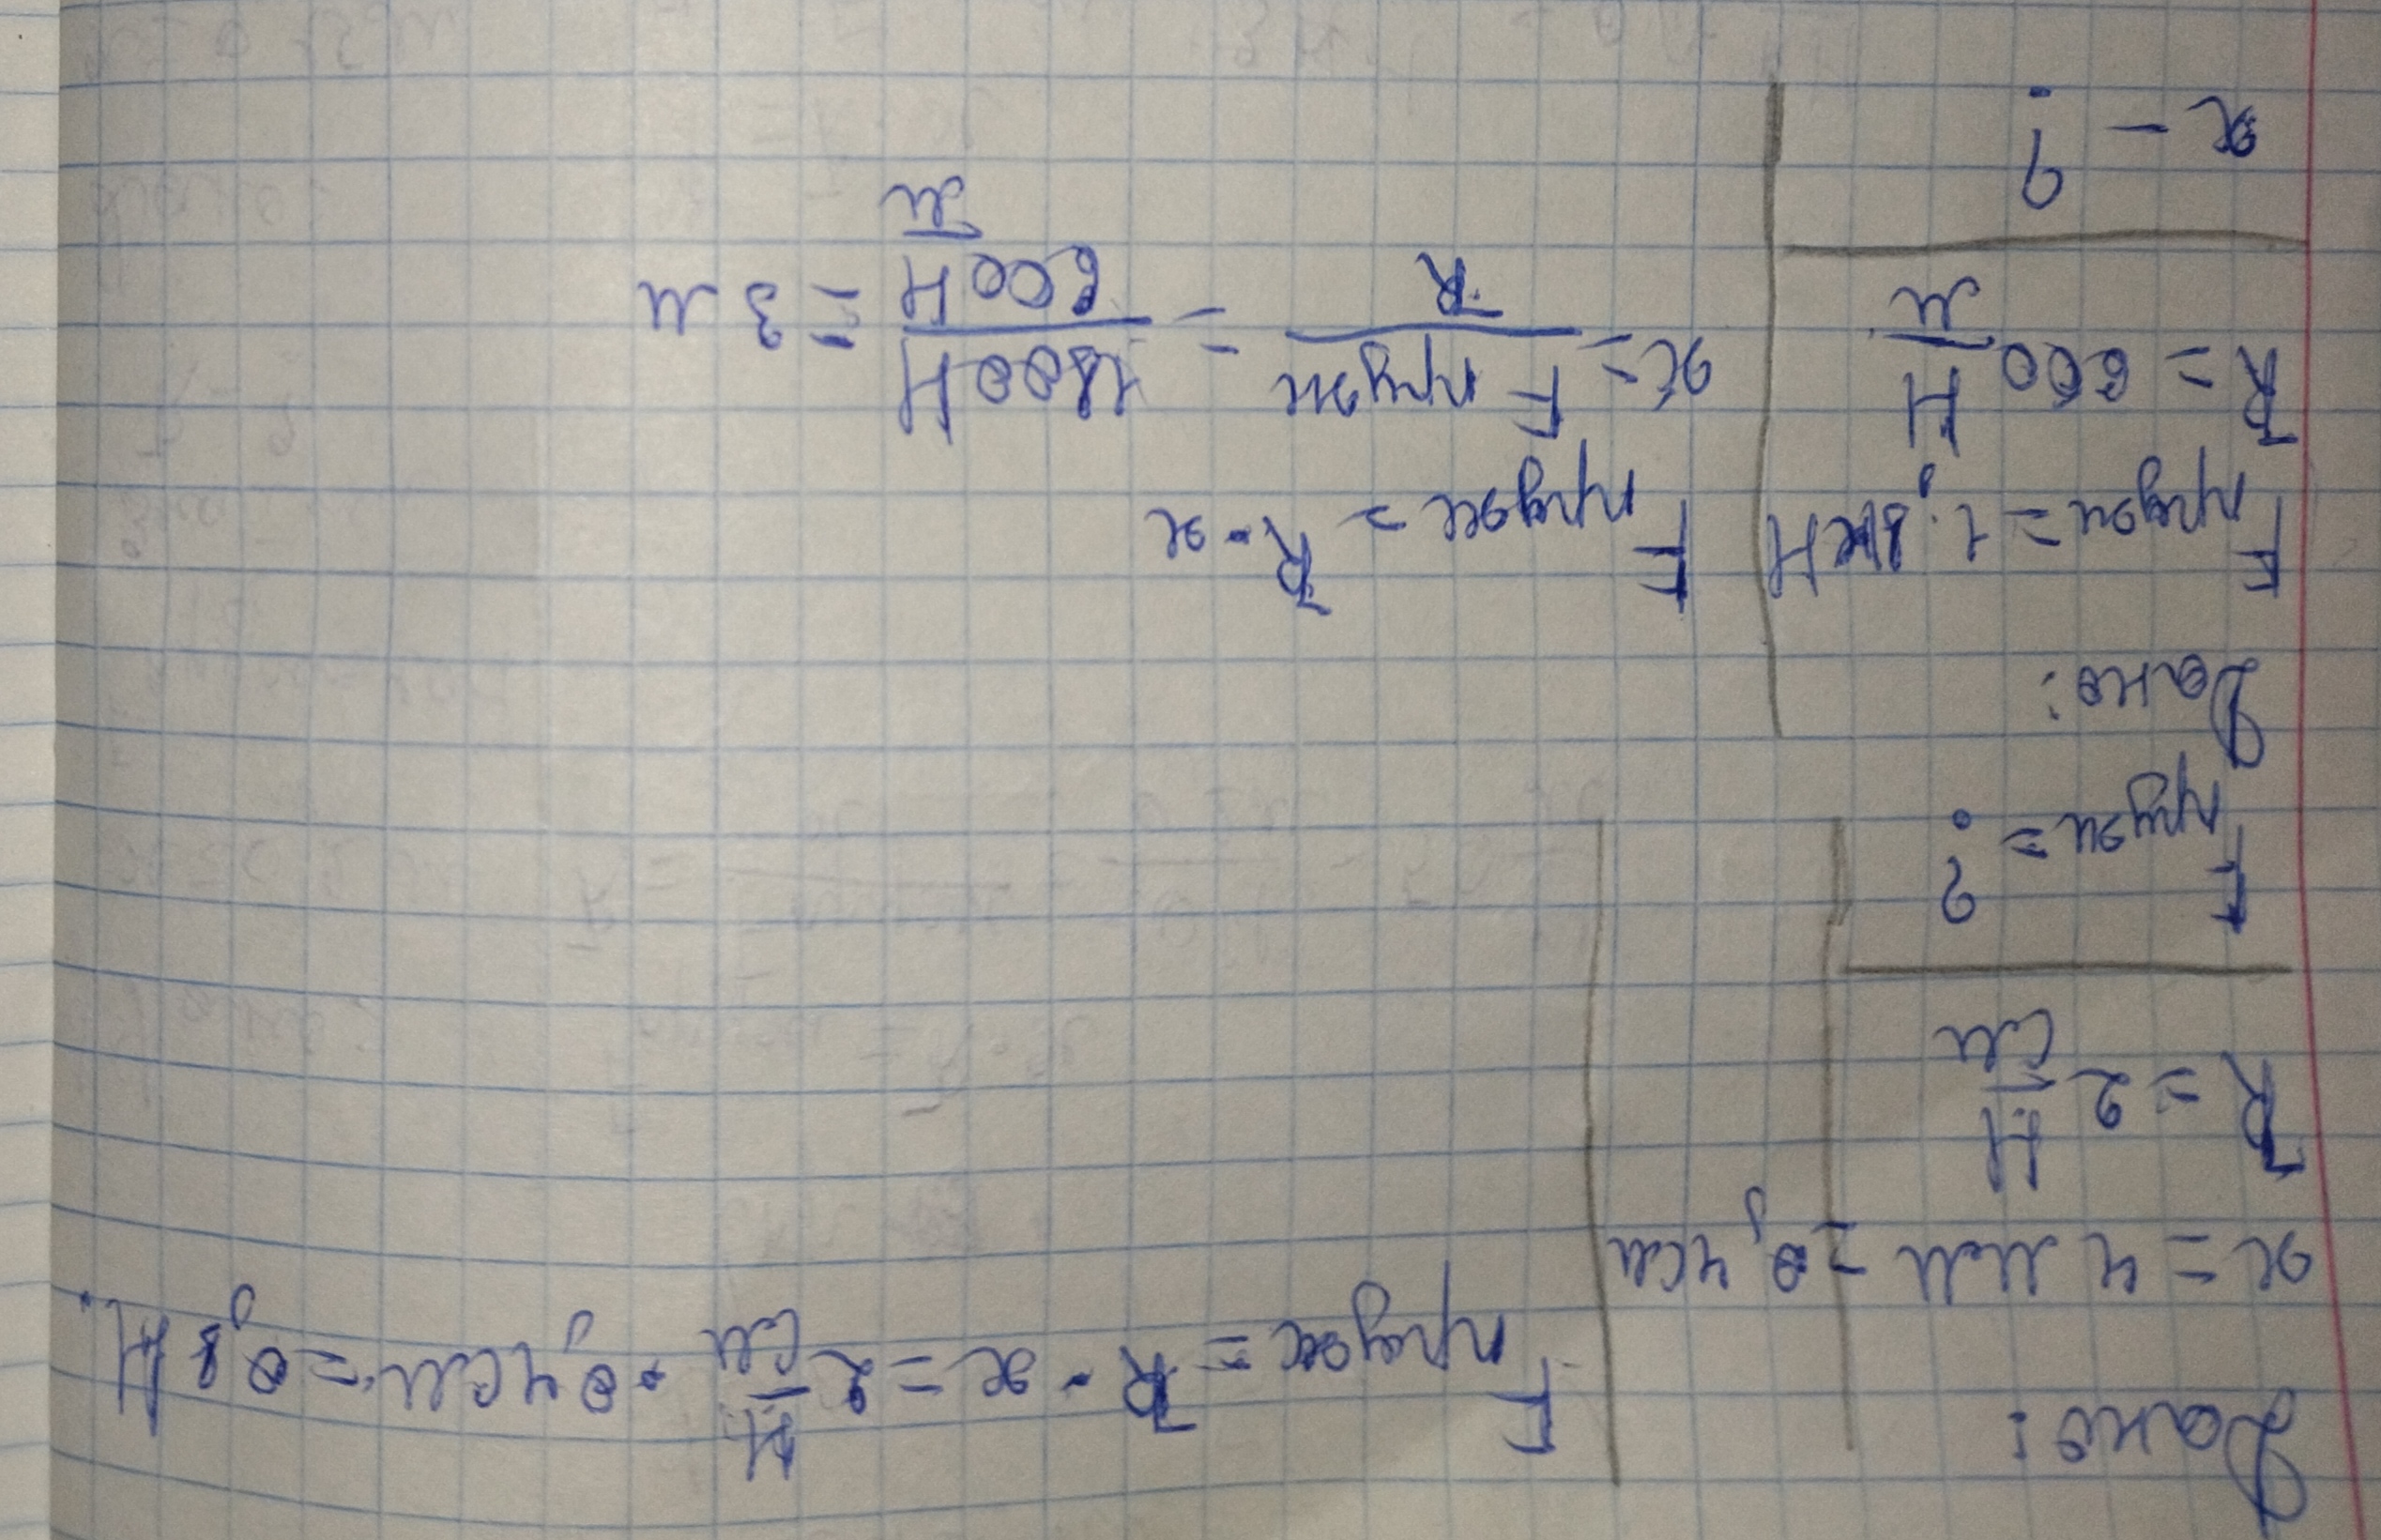 Дано:
x = 4 мм = 0,4 см
k = 2 Н/см
Fпруж = ?
Fпруж = k · x = 2 Н/см · 0,4 см = 0,8 Н.
Дано:
Fпруж = 1,8 кН
k = 600 Н/м
x - ?
Fпруж = k · x
x = Fпруж/k = 1800 Н/600 Н/м = 3 м